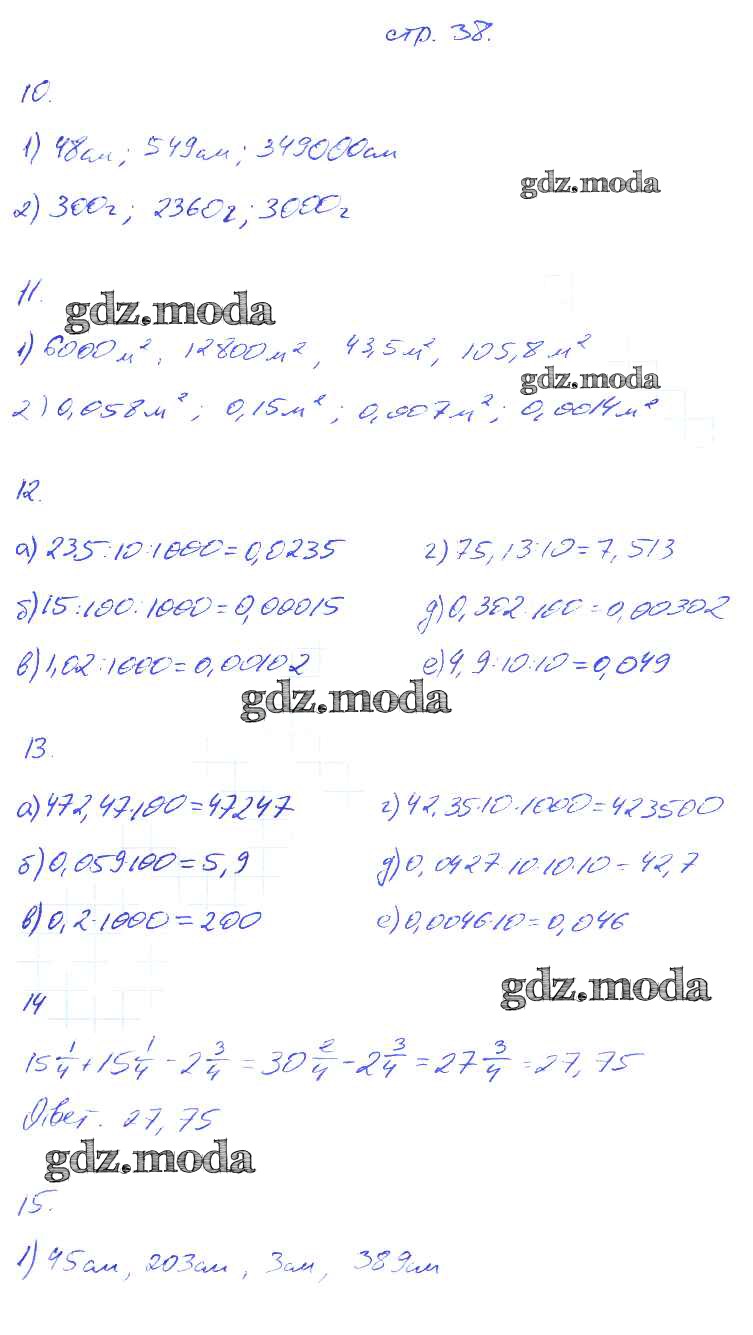 стр. 38.
10.
1) 48см; 549см; 349000см
gdz.moda
2) 300г; 2360г; 3000г
11.
gdz.moda
1) 6000м², 12800м², 43,5м², 105,8м²
gdz.moda
2) 0,058м²; 0,15м²; 0,007м²; 0,0014м²
12.
а) 235:10:1000=0,0235 г) 75,13:10=7,513
б) 15:100:1000=0,00015 д) 0,302:100=0,00302
в) 1,02:1000=0,00102 е) 4,9:10:10=0,049
gdz.moda
13.
а) 472,47·100=47247 г) 42,35·10·1000=423500
б) 0,059·100=5,9 д) 0,0427·10·10·10=42,7
в) 0,2·1000=200 е) 0,0046·10=0,046
gdz.moda
14
15 1/4 + 15 1/4 - 2 3/4 = 30 2/4 - 2 3/4 = 27 3/4 = 27,75
Ответ. 27,75
gdz.moda
15.
1) 45см, 203см, 3см, 389см